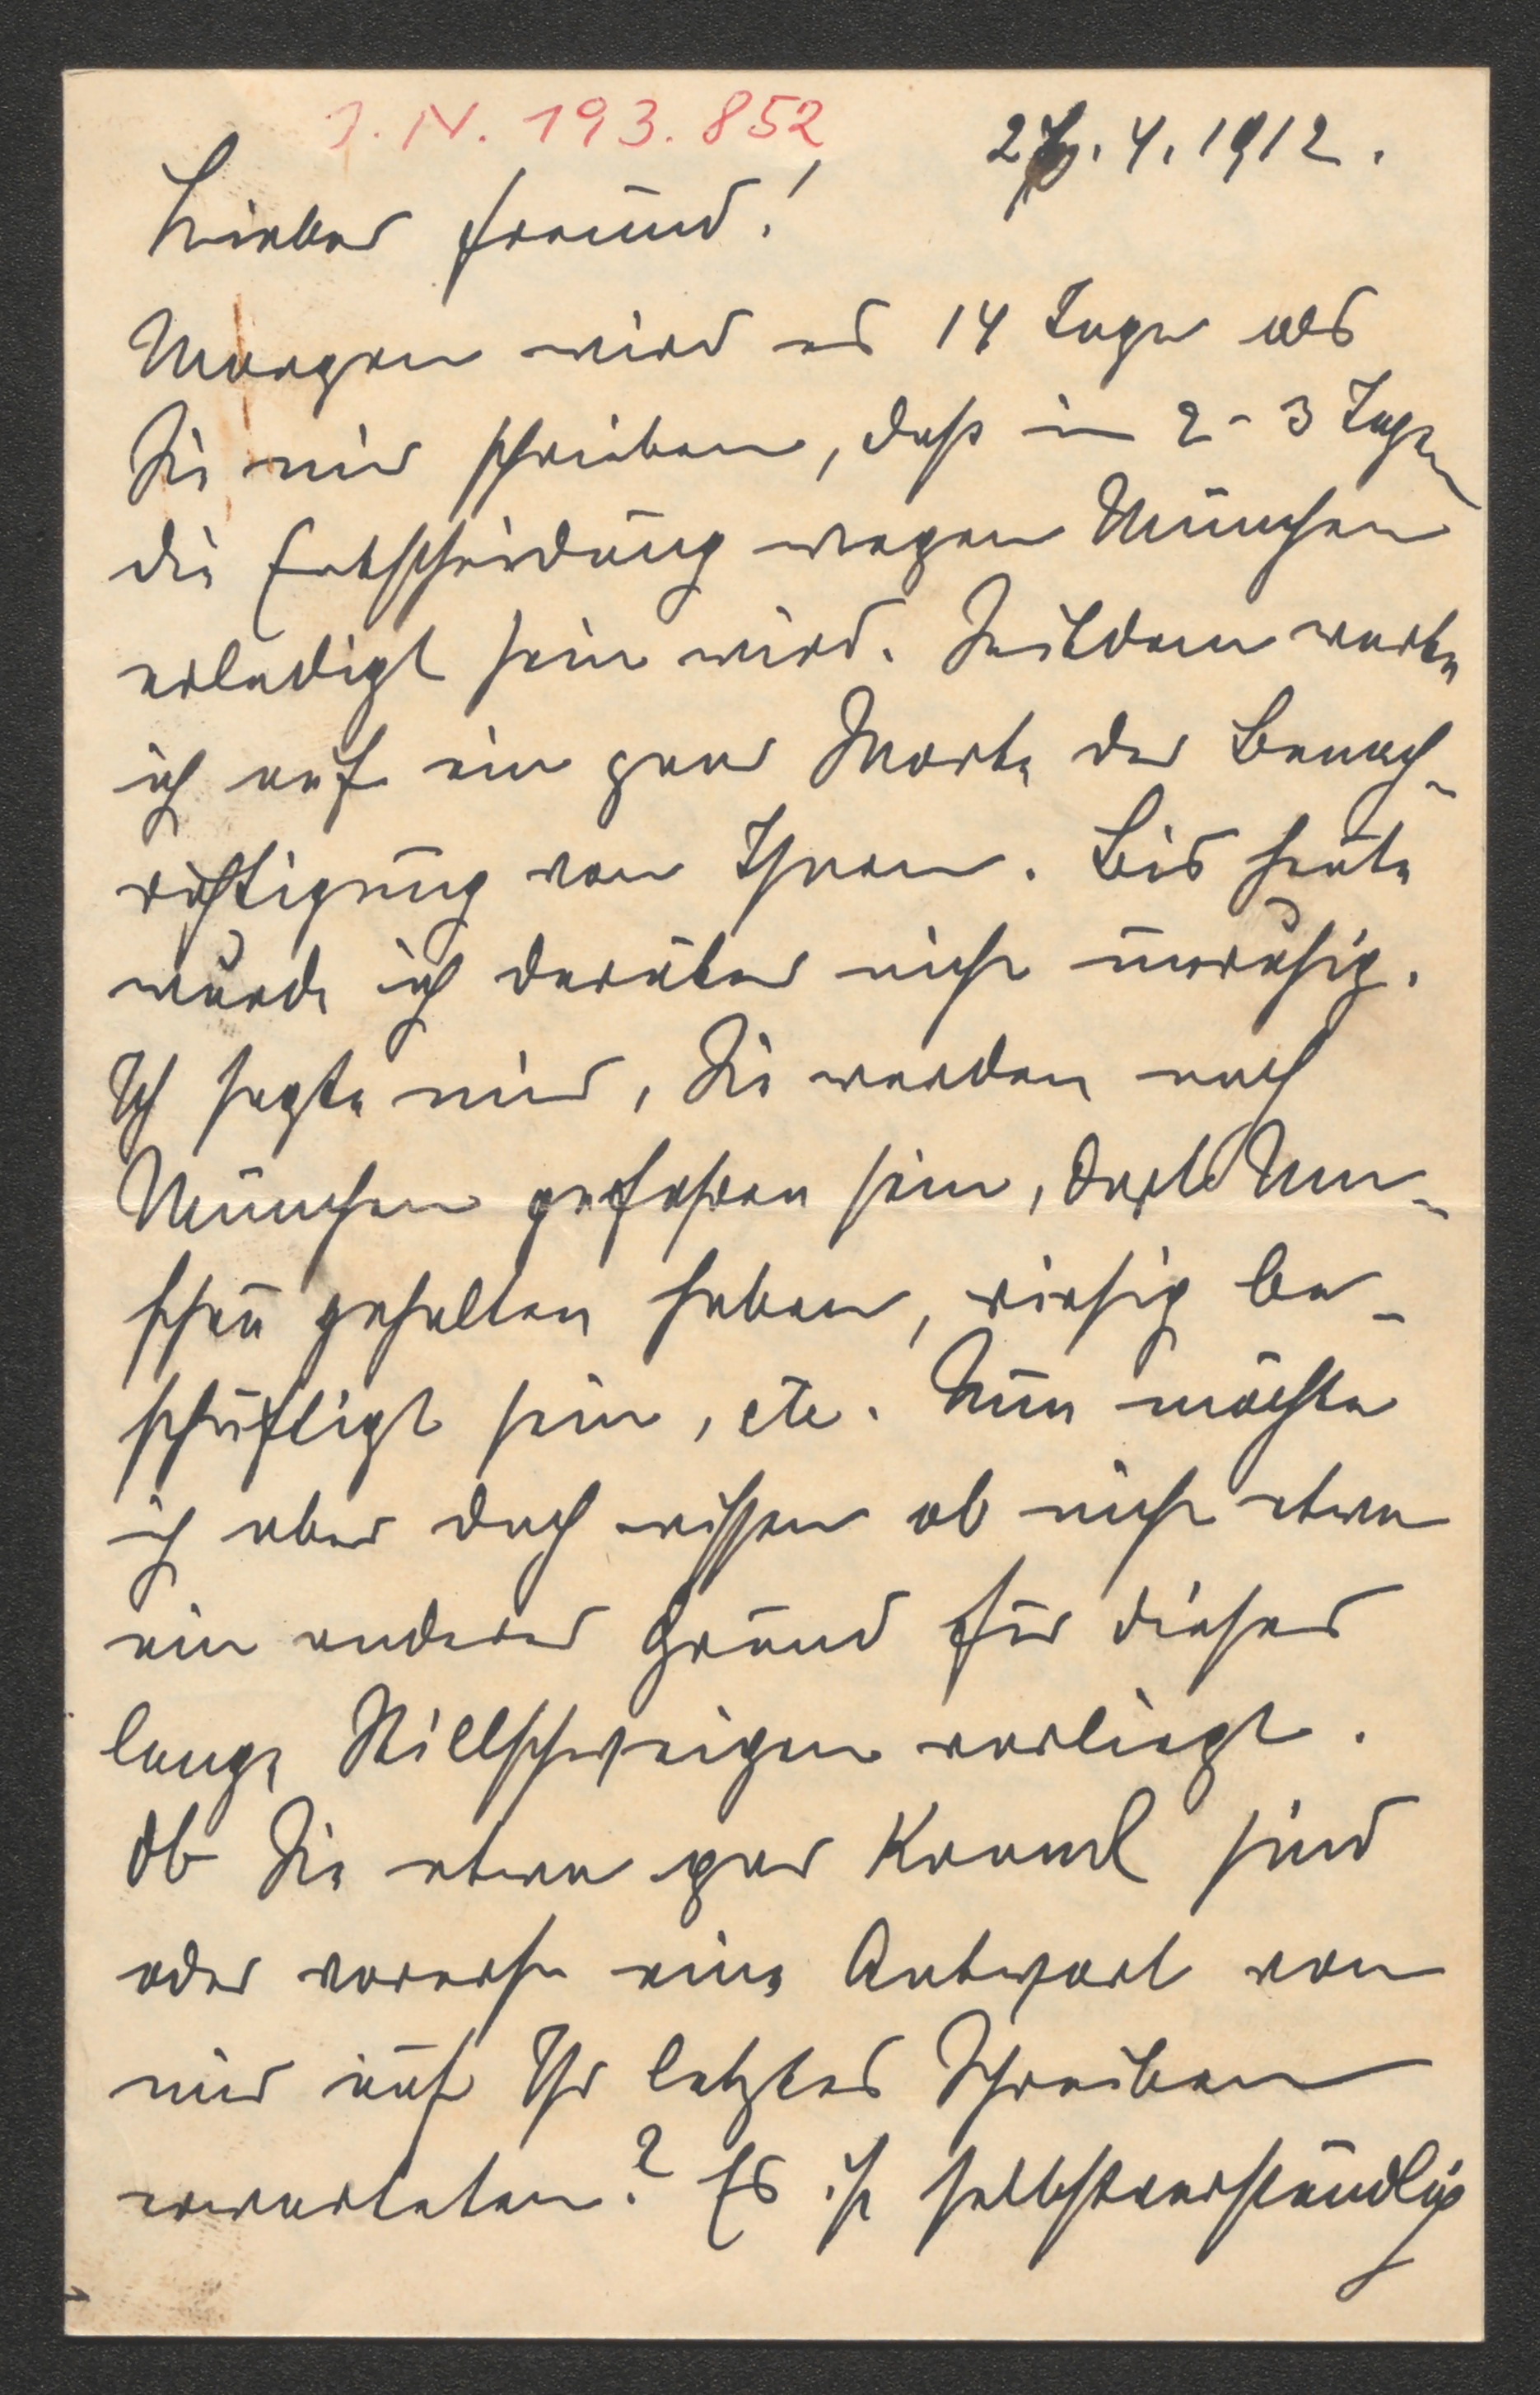 I. N. 193.852
27.4.1912.
Lieber Freund!
Morgen wird es 14 Tage als
Sie mir schrieben, daß in 2-3 Tagen
die Entscheidung wegen München
erledigt sein wird. Seitdem warte
ich auf ein paar Worte der Benach-
richtigung von Ihnen. Bis heute
wurde ich darüber nicht unruhig.
Ich sagte mir, Sie werden nach
München gefahren sein, dort Um-
schau gehalten haben, riesig be-
schäftigt sein, etc. Nun möchte
ich aber doch wissen ob nicht etwa
ein anderer Grund für dieses
lange Stillschweigen vorliegt.
Ob Sie etwa gar krank sind
oder vorerst eine Antwort von
mir auf Ihr letztes Schreiben
erwarteten? Es ist selbstverständlich